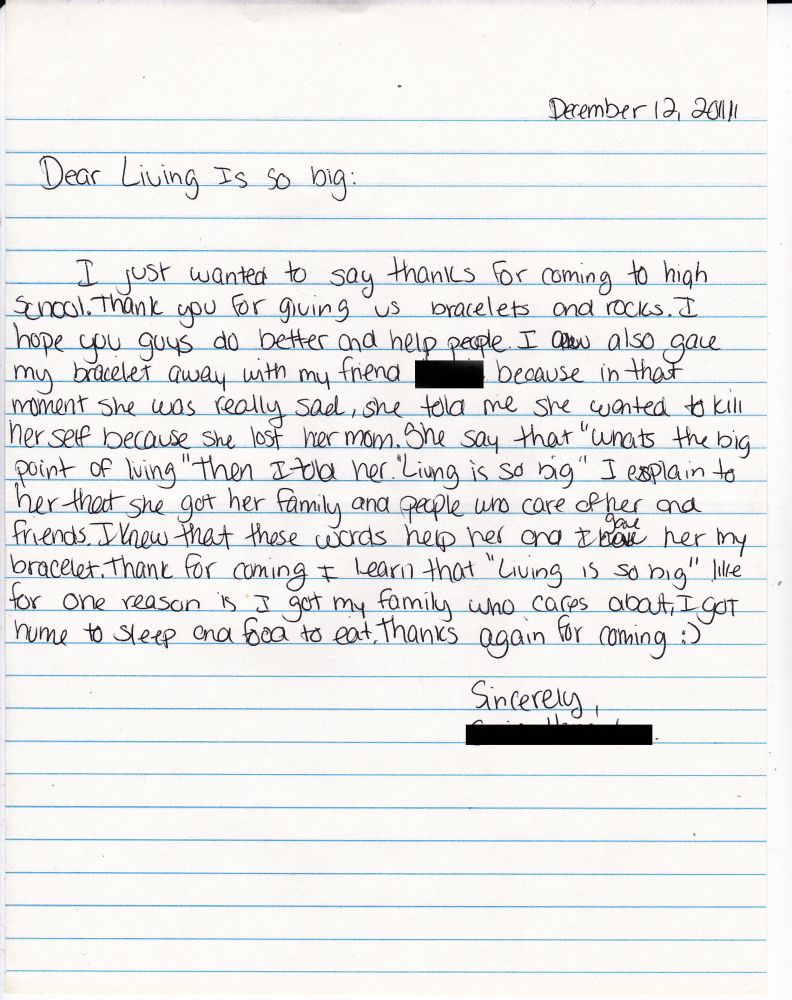 December 12, 2011
Dear Living Is so big:
I just wanted to say thanks for coming to high
school. Thank you for giving us bracelets and rocks. I
hope you guys do better and help people. I also gave
my bracelet away with my friend because in that
moment she was really sad, she told me she wanted to kill
her self because she lost her mom. She say that "whats the big
point of living" then I told her. "Living is so big" I explain to
her that she got her family and people who care of her and
friends. I knew that these words help her and I gave her my
bracelet. Thank for coming I learn that "Living is so big" like
for one reason is I got my family who cares abat, I got
hume to sleep and food to eat. Thanks again for coming :)
Sincerely,